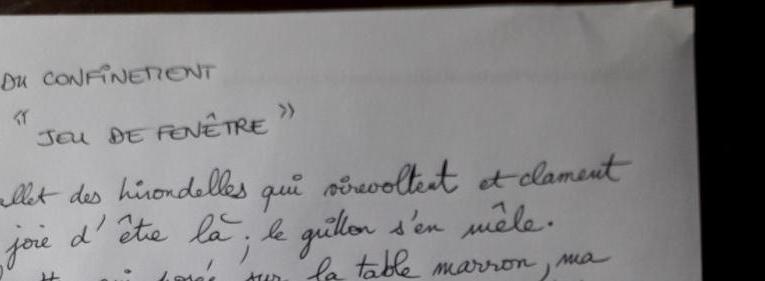 DU CONFINEMENT
" JEU DE FENÊTRE "
allet des hirondelles qui virevoltent et clament
joie d'être là ; le grillon s'en mêle.
posée sur la table marron, ma